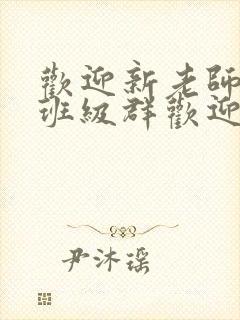 歡迎新老師
班級群歡迎
尹沐瑶